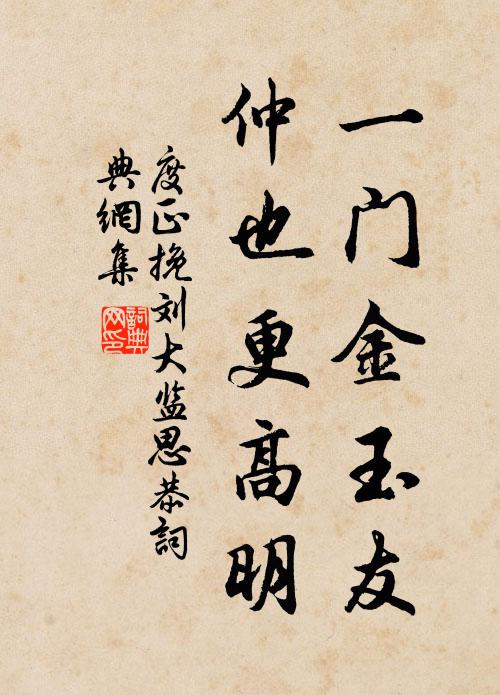 一门金玉友
仲也更高明
度正挽刘大监思恭词
典網集
詞典網印